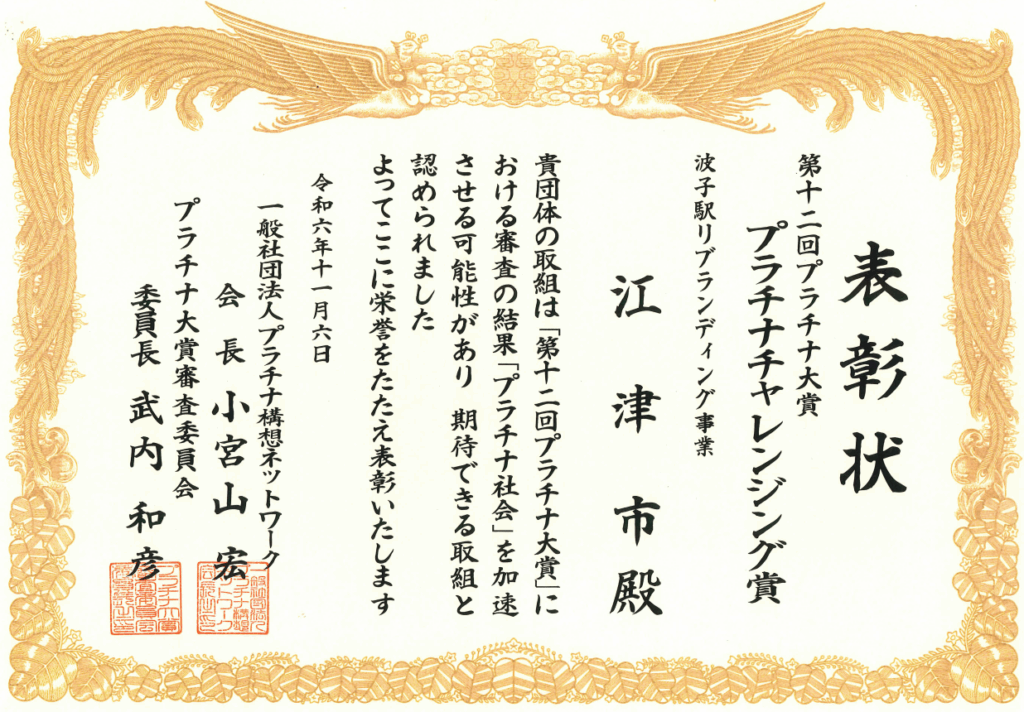 表彰状
第十二回プラチナ大賞
プラチナチャレンジング賞
波子駅リブランディング事業
江津市殿
貴団体の取組は「第十二回プラチナ大賞」に
おける審査の結果「プラチナ社会」を加速
させる可能性があり 期待できる取組と
認められました
よってここに栄誉をたたえ表彰いたします
令和六年十一月六日
一般社団法人プラチナ構想ネットワーク
会長 小宮山宏
プラチナ大賞審査委員会
委員長 武内和彦